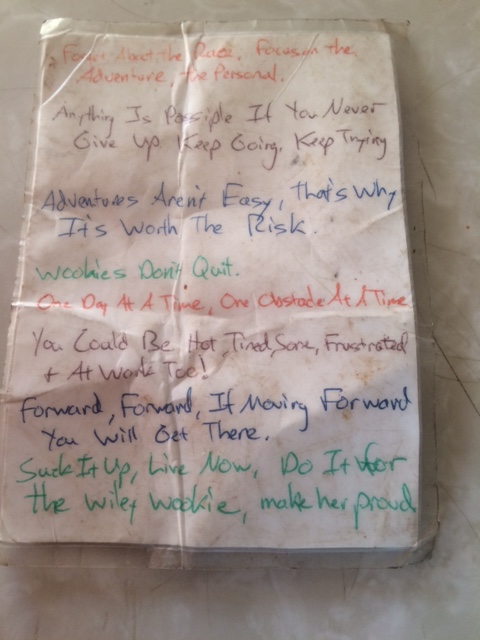 Forget About the Race. Focus on the
Adventure, the Personal.
Anything Is Possible If You Never
Give Up Keep Going, Keep Trying
Adventures Aren't Easy, that's Why
It's Worth The Risk.
Wookies Don't Quit.
One Day At A Time, One Obstacle At A Time
You Could Be Hot, Tired, Sore, Frustrated
+ At Work Too!
Forward, Forward, If Moving Forward
You Will Get There.
Suck It Up, Live Now, Do It for
the wiley wookie, make her proud